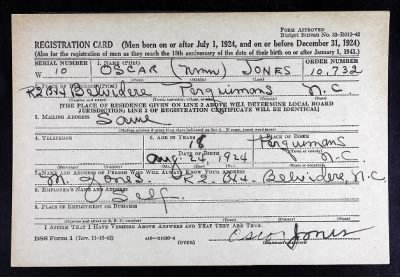 FORM APPROVED
Budget Bureau No. 33-R012-42
REGISTRATION CARD (Men born on or after July 1, 1924, and on or before December 31, 1924)
(Also for the registration of men as they reach the 18th anniversary of the date of their birth on or after January 1, 1943.)
SERIAL NUMBER 1. NAME (Print) ORDER NUMBER
W 10 OSCAR (nmn) JONES 10,732
R2 Belvidere Perquimans N.C.
[THE PLACE OF RESIDENCE GIVEN ON LINE 2 ABOVE WILL DETERMINE LOCAL BOARD
JURISDICTION; LINE 2 OF REGISTRATION CERTIFICATE WILL BE IDENTICAL]
3. MAILING ADDRESS
Same
4. TELEPHONE 5. AGE IN YEARS 6. PLACE OF BIRTH
18 Perquimans
DATE OF BIRTH
Aug. 24, 1924 N.C.
7. NAME AND ADDRESS OF PERSON WHO WILL ALWAYS KNOW YOUR ADDRESS
M. Jones R2 Belvidere, N.C.
8. EMPLOYER'S NAME AND ADDRESS
Self
9. PLACE OF EMPLOYMENT OR BUSINESS
I AFFIRM THAT I HAVE VERIFIED ABOVE ANSWERS AND THAT THEY ARE TRUE.
DSS Form 1 (Rev. 11-16-42) (OVER) Oscar Jones